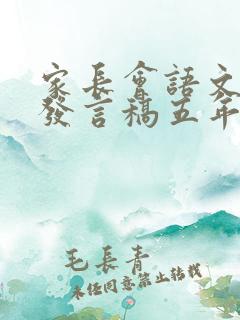 家長會語文
發言稿五年
毛長青
未經同意禁止轉載